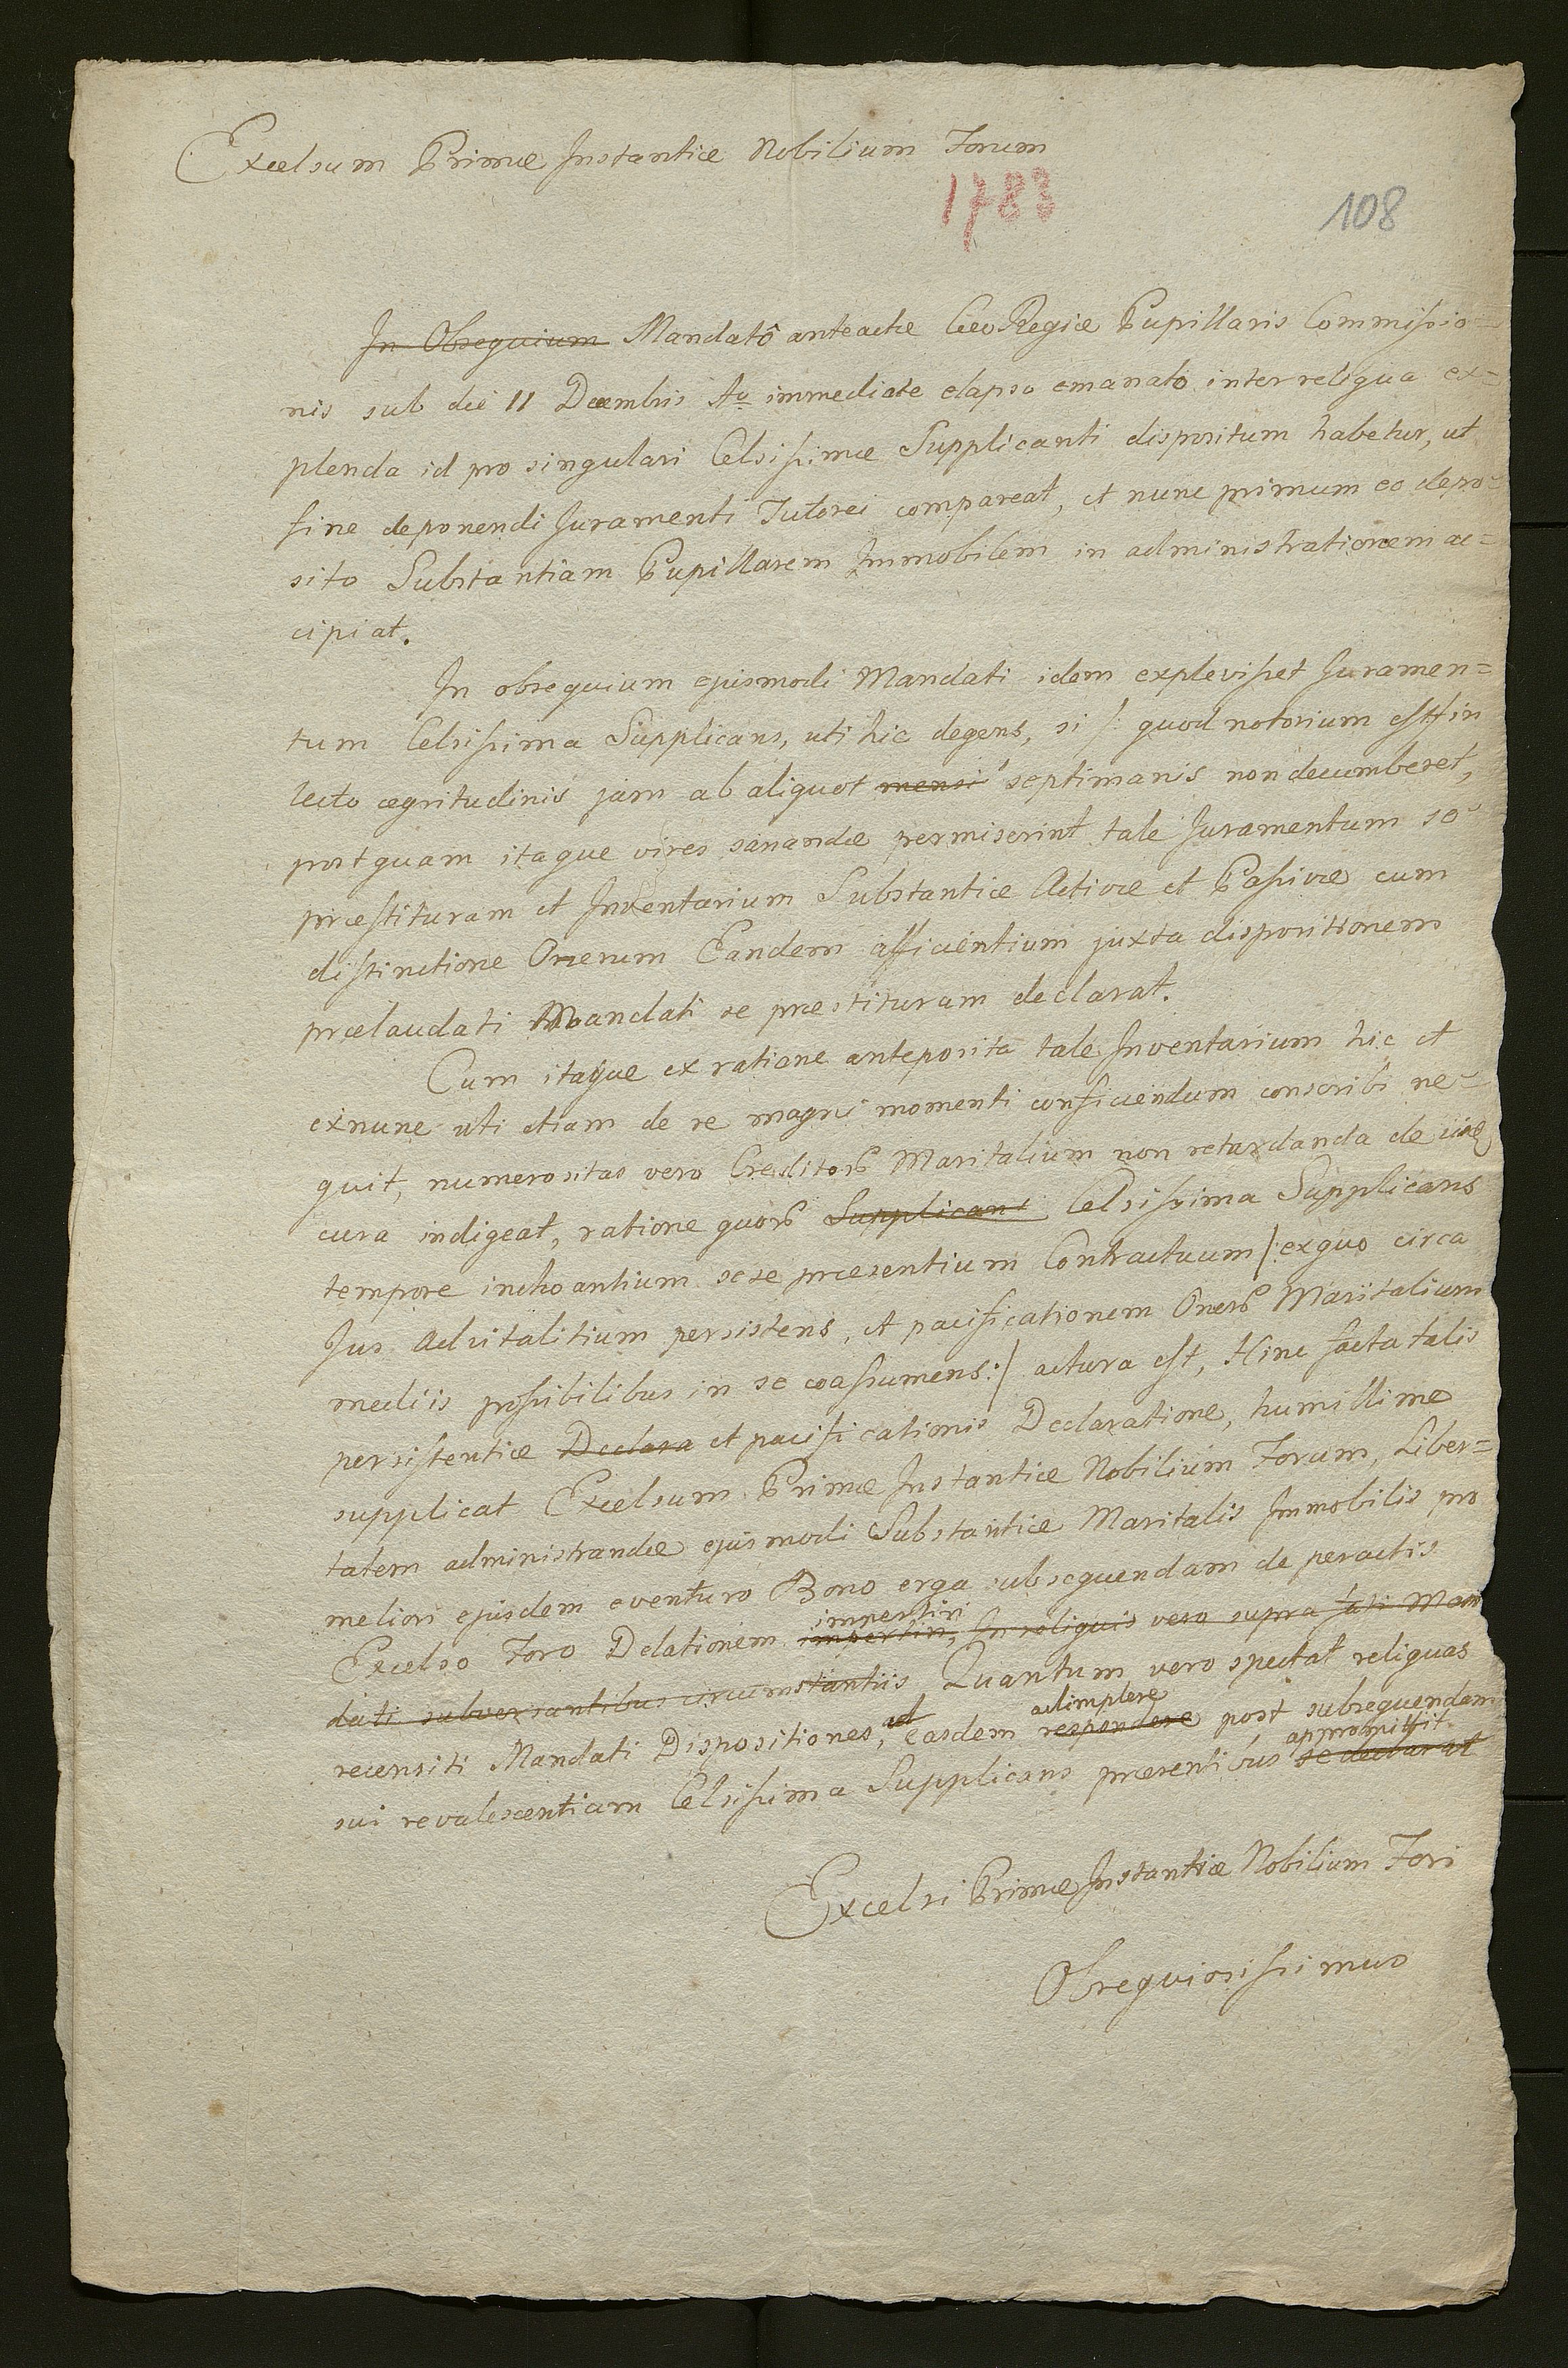 Excelsum Primæ Instantiæ Nobilium Forum
1783
108
In Obsequium Mandatô anteactæ Cæo Regiæ Pupillaris Commissio=
nis sub die 11 Decembris Ao immediate elapso emanato inter reliqua ex=
plenda id pro singulari Celsissimæ Supplicanti dispositum habetur, ut
fine deponendi Juramenti Tutorei compareat, et nunc primum eo depo=
sito Substantiam Pupillarem Immobilem in administrationem ac=
cipiat.
In obsequium ejusmodi Mandati idem explevisset Juramen=
tum Celsissima Supplicans, uti hic degens, si /: quod notorium est :/ in
lecto ægritudinis jam ab aliquot mensi septimanis non decumberet,
postquam itaque vires sanandæ permiserint tale Juramentum se
præstituram et Inventarium Substantiæ Activæ et Passivæ cum
distinctione Onerum Eandem afficientium juxta dispositionem
prælaudati Mandati se præstituram declarat.
Cum itaque ex ratione anteposita tale Inventarium hic et
exnunc uti etiam de re magni momenti conficiendum conscribi ne=
quit, numerositas vero Creditorum Maritalium non retardanda de iure
cura indigeat, ratione quorum Supplicant Celsissima Supplicans
tempore inchoantium sese præsentium Contractuum /: exquo circa
Jus Advitalitium persistens, et pacificationem Onerum Maritalium
mediis possibilibus in se coassumens :/ actura est, Hinc facta talis
persistentiæ Declara et pacificationis Declaratione, humillime
supplicat Excelsum Primæ Instantiæ Nobilium Forum, Liber=
tatem administrandæ ejusmodi Substantiæ Maritalis Immobilis pro
meliori ejusdem eventuro Bono erga subsequendam de peractis
impertiri
Excelso Foro Delationem impertiri, In reliquis vero supra fati Man
dati subversantibus circumstantiis Quantum vero spectat reliquas
ad adimplere
recensiti Mandati Dispositiones, easdem respondere post subsequendam
appromittit
sui revalescentiam Celsissima Supplicans præsentibus se declarat
Excelsi Primæ Instantiæ Nobilium Fori
Obsequiosissimus